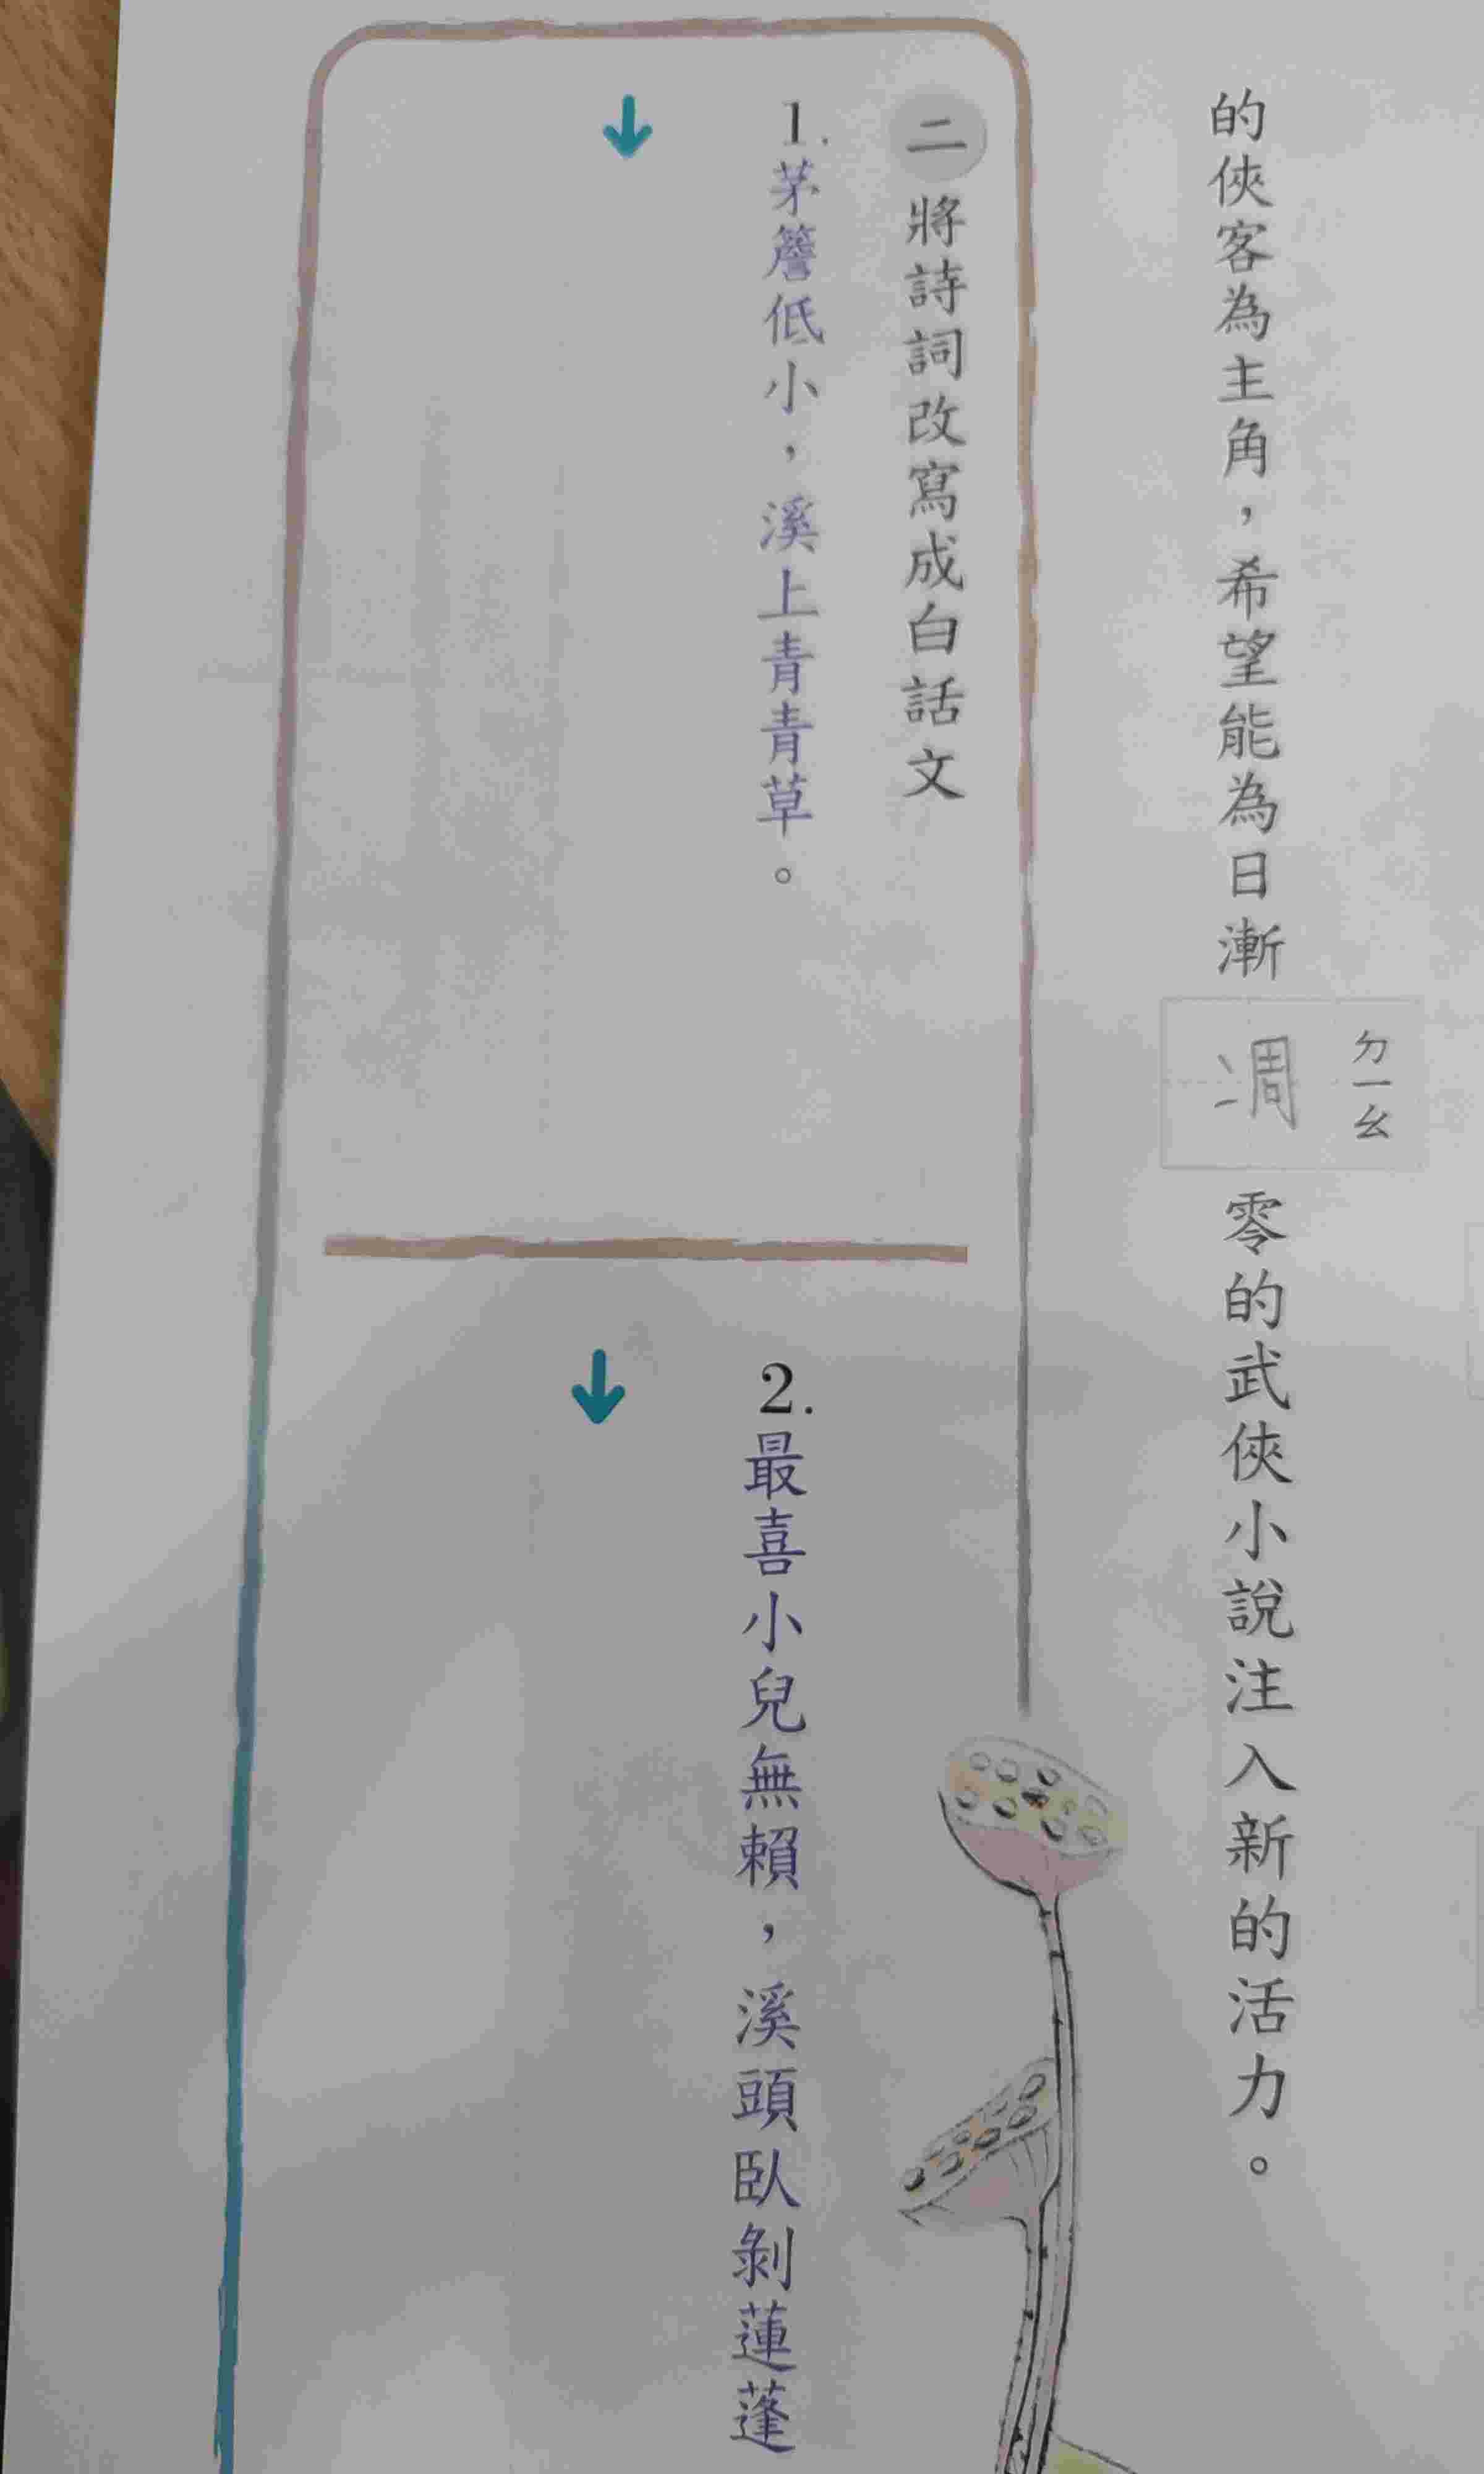 的俠客為主角，希望能為日漸凋ㄉㄧㄠ零的武俠小說注入新的活力。
二 將詩詞改寫成白話文
1.茅簷低小，溪上青青草。
2.最喜小兒無賴，溪頭臥剝蓮蓬